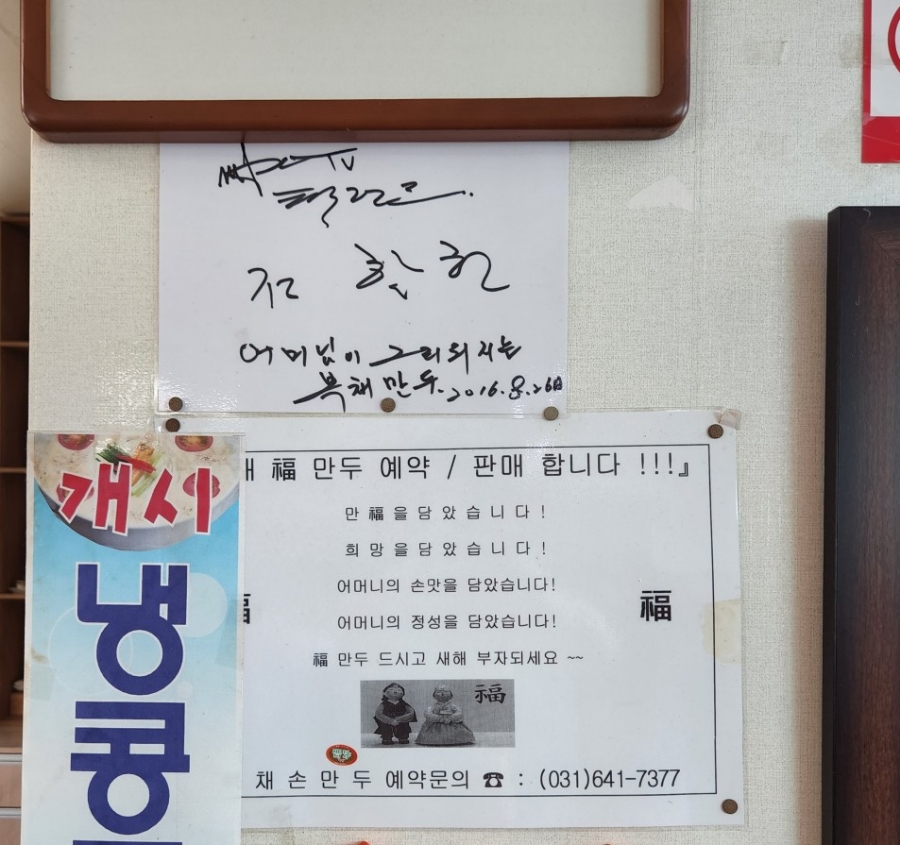 TV
어머님이 그리워지는
복채만두. 2016. 8. 26日
福 만두 예약 / 판매 합니다 !!!』
만 福 을 담 았 습 니 다 !
희 망 을 담 았 습 니 다 !
어머니의 손맛을 담았습니다!
어머니의 정성을 담았습니다!
福 만두 드시고 새해 부자되세요 ~~
福
福
채 손 만 두 예약문의 ☎ : (031)641-7377
개시